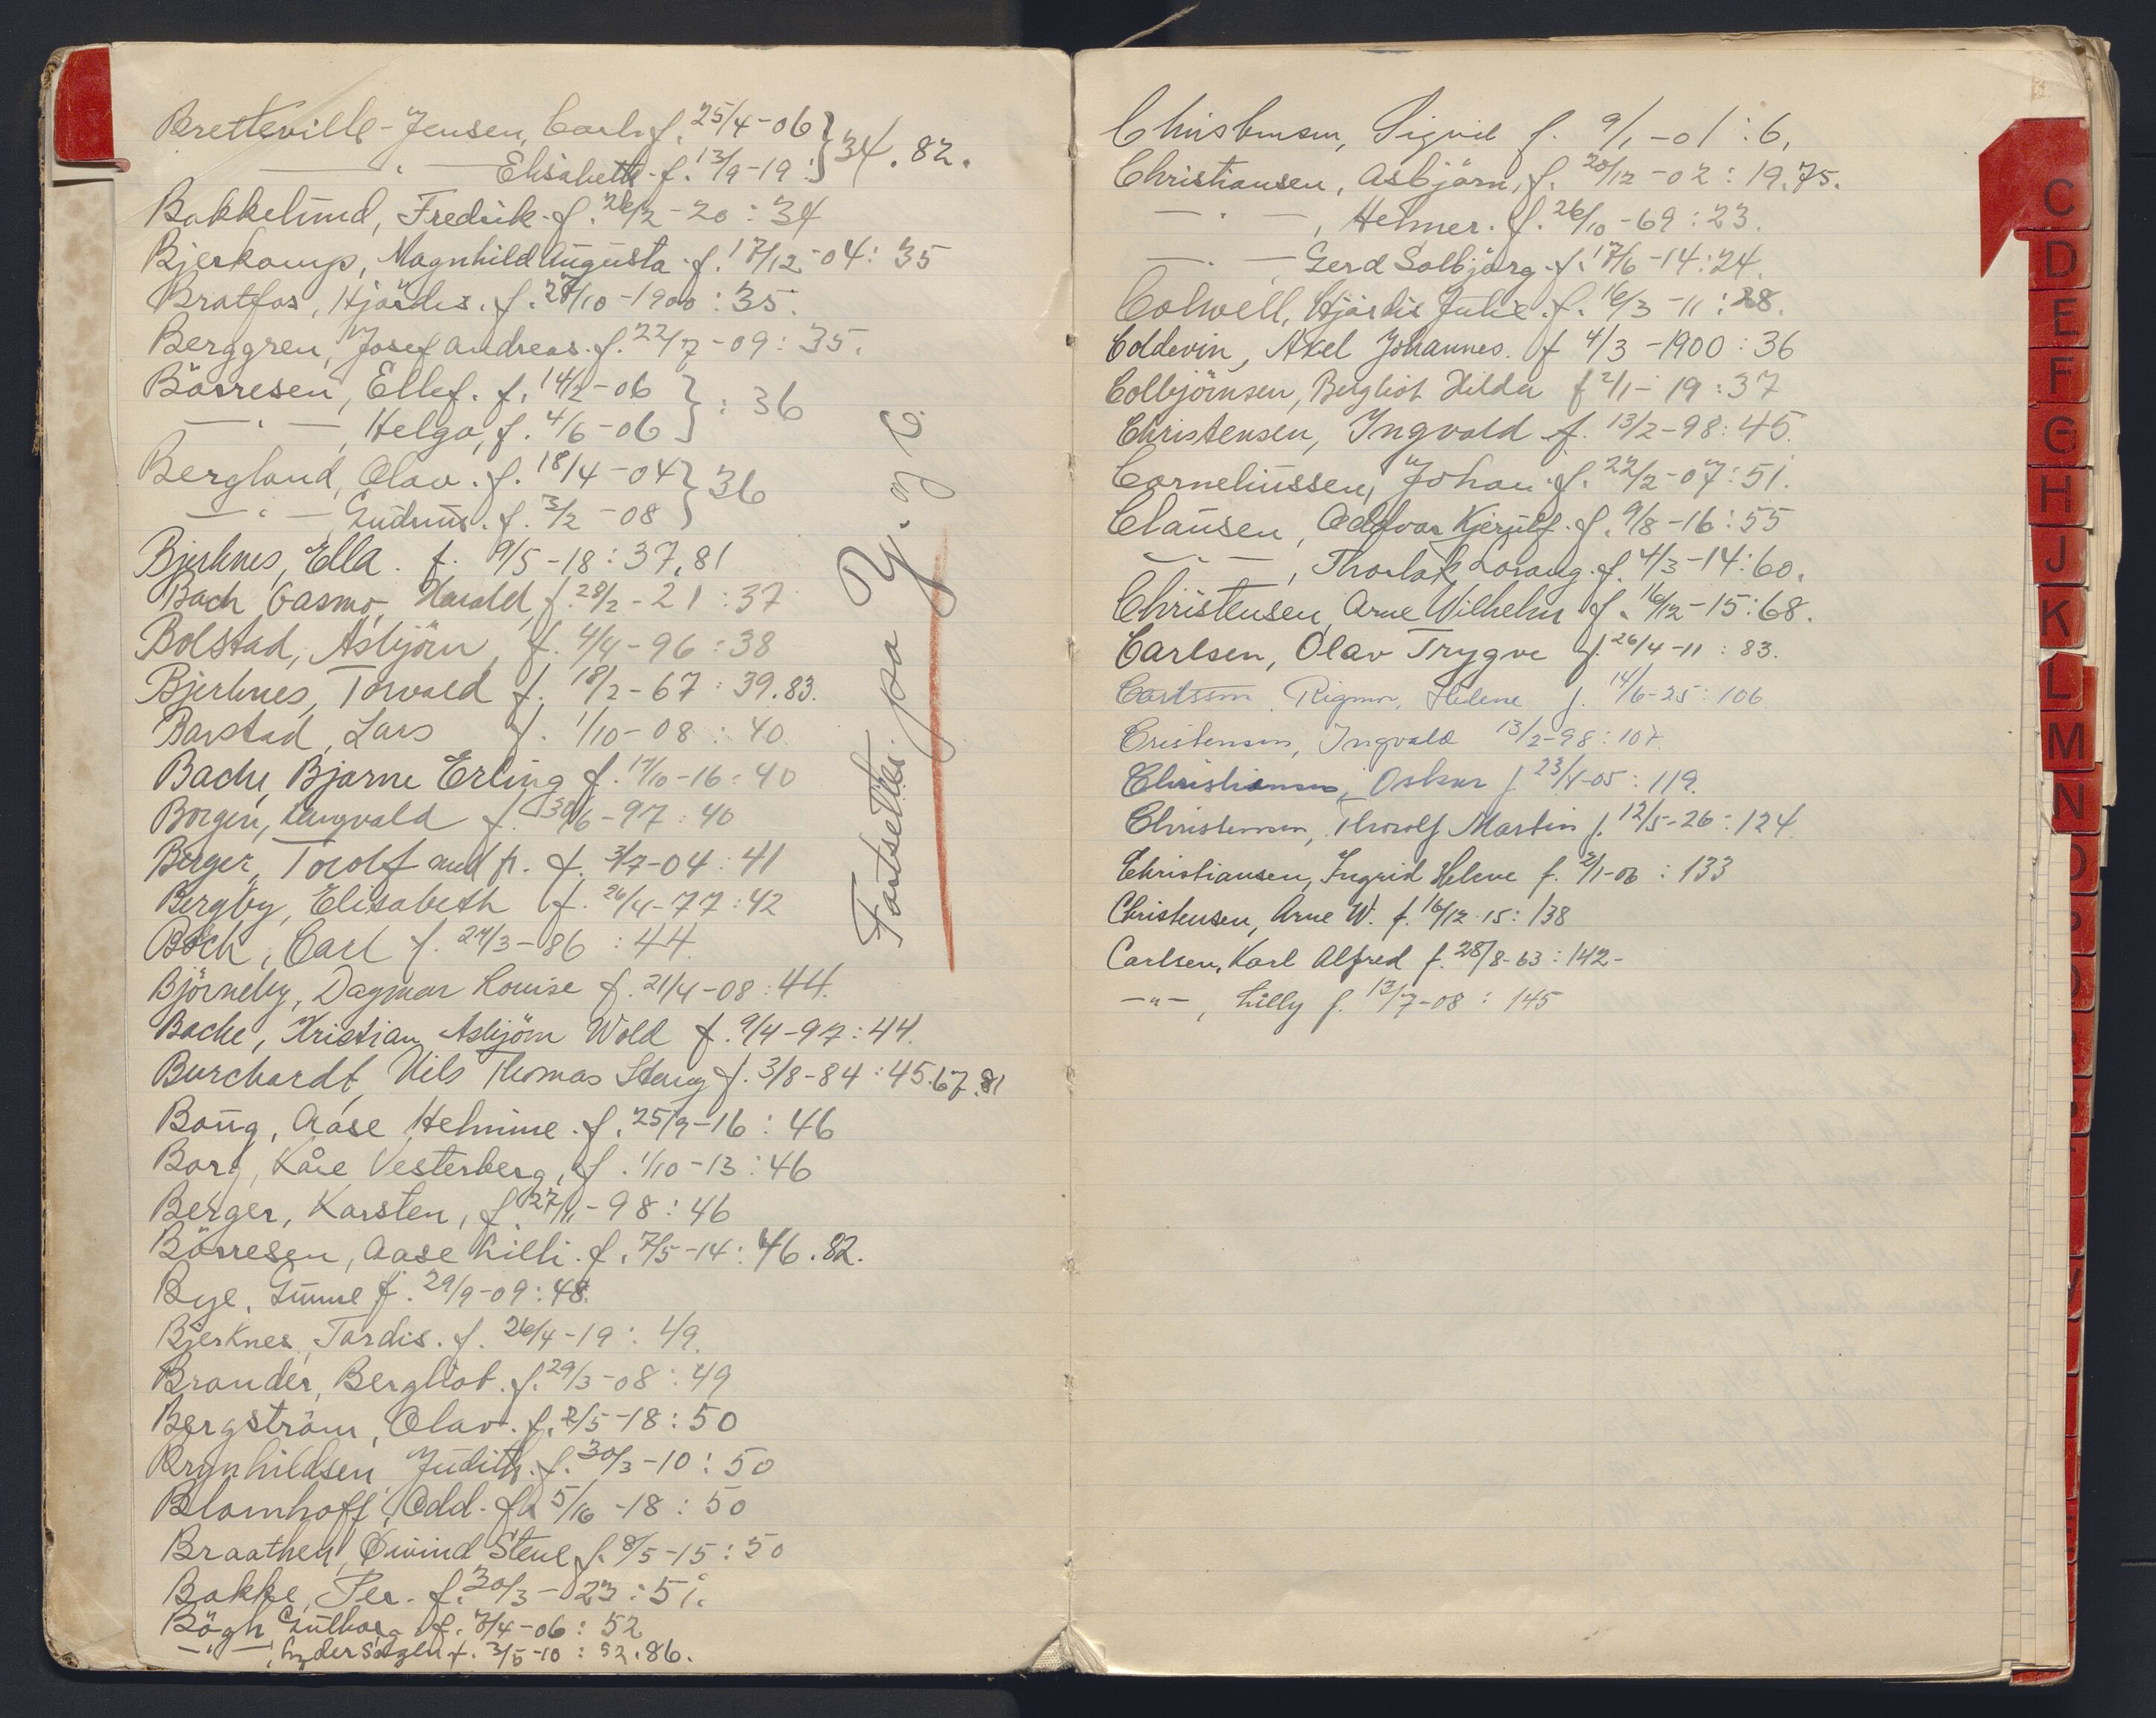 Bretteville-Jensen, Carl. f. 25/4-06 } 34. 82.
— " — Elisabeth. f. 13/9-19 :
Bakkelund, Fredrik. f. 26/2-20 : 34
Bjerkamp, Magnhild Augusta. f. 17/12-04 : 35
Bratfos, Hjördis. f. 27/10-1900 : 35.
Berggren, Josef Andreas. f. 22/7-09 : 35.
Börresen, Ellef. f. 14/2-06 } : 36
— " —, Helga, f. 4/6-06
Bergland, Olav. f. 18/4-04 } 36
— " — Gudrun. f. 3/2-08
Bjerknes, Ella. f. 9/5-18 : 37, 81
Bach Gasmo, Harald, f. 28/2-21 : 37
Bolstad, Asbjörn, f. 4/4-96 : 38
Bjerknes, Torvald f. 18/2-67 : 39. 83.
Barstad, Lars f. 1/10-08 : 40.
Bache, Bjarne Erling f. 17/10-16 : 40
Borgen, Langvald f. 30/6-97 : 40
Berger, Torolf med fr. f. 3/7-04 : 41
Bergby, Elisabeth f. 26/4-77 : 42
Boch, Carl f. 27/3-86 : 44.
Björneby, Dagmar Louise f. 21/4-08 : 44.
Bache, Kristian Asbjörn Wold f. 9/4-97 : 44.
Burchardt, Nils Thomas Stang f. 3/8-84 : 45. 67. 81
Baug, Aase Helmine. f. 25/9-16 : 46
Borg, Kåre Vesterberg, f. 1/10-13 : 46
Berger, Karsten, f. 27/11-98 : 46
Börresen, Aase Lilli. f. 7/5-14 : 46. 82.
Bye, Gunne f. 29/9-09 : 48.
Bjerknes, Tordis. f. 26/4-19 : 49.
Brander, Bergliot. f. 29/3-08 : 49
Bergström, Olav. f. 2/5-18 : 50
Brynhildsen, Judith. f. 30/3-10 : 50
Blomhoff, Odd. f. 5/10-18 : 50
Braathen, Øivind Stene, f. 8/5-15 : 50
Bakke, Per. f. 30/3-23 : 51.
Bögh, Gulborg f. 7/4-06 : 52
— " —, f. 3/5-10 : 52. 86.
Fortsettes på Y. og C.
Christensen, Sigvil f. 9/1-01 : 6.
Christiansen, Asbjörn, f. 20/12-02 : 19. 75.
— " —, Helmer. f. 26/10-69 : 23.
— " — Gerd Solbjörg. f. 17/6-14 : 24.
Colwell, Hjördis Julie. f. 16/3-11 : 28.
Coldevin, Axel Johannes. f 4/3-1900 : 36
Colbjörnsen, Bergliot Hilda f 2/1-19 : 37
Christensen, Ingvald f. 13/2-98 : 45.
Corneliussen, Johan. f. 22/2-07 : 51.
Clausen, Oddvar Kjerulf. f. 9/8-16 : 55
— " —, Thorlak Lorang. f. 4/3-14 : 60.
Christensen, Arne Wilhelm f. 16/12-15 : 68.
Carlsen, Olav Trygve f. 26/4-11 : 83.
Carlsson, Rigmor Helene f. 14/6-25 : 106
Cristensen, Ingvald 13/2-98 : 107.
Christiansen, Oskar f 23/4-05 : 119.
Christensen, Thorolf Martin f. 12/5-26 : 124.
Christiansen, Ingrid Helene f. 2/1-06 : 133
Christensen, Arne W. f. 16/12-15 : 138
Carlsen, Karl Alfred f. 28/8-63 : 142-
— " —, Lilly f. 13/7-08 : 145
C
D
E
F
G
H
J
K
L
M
N
O